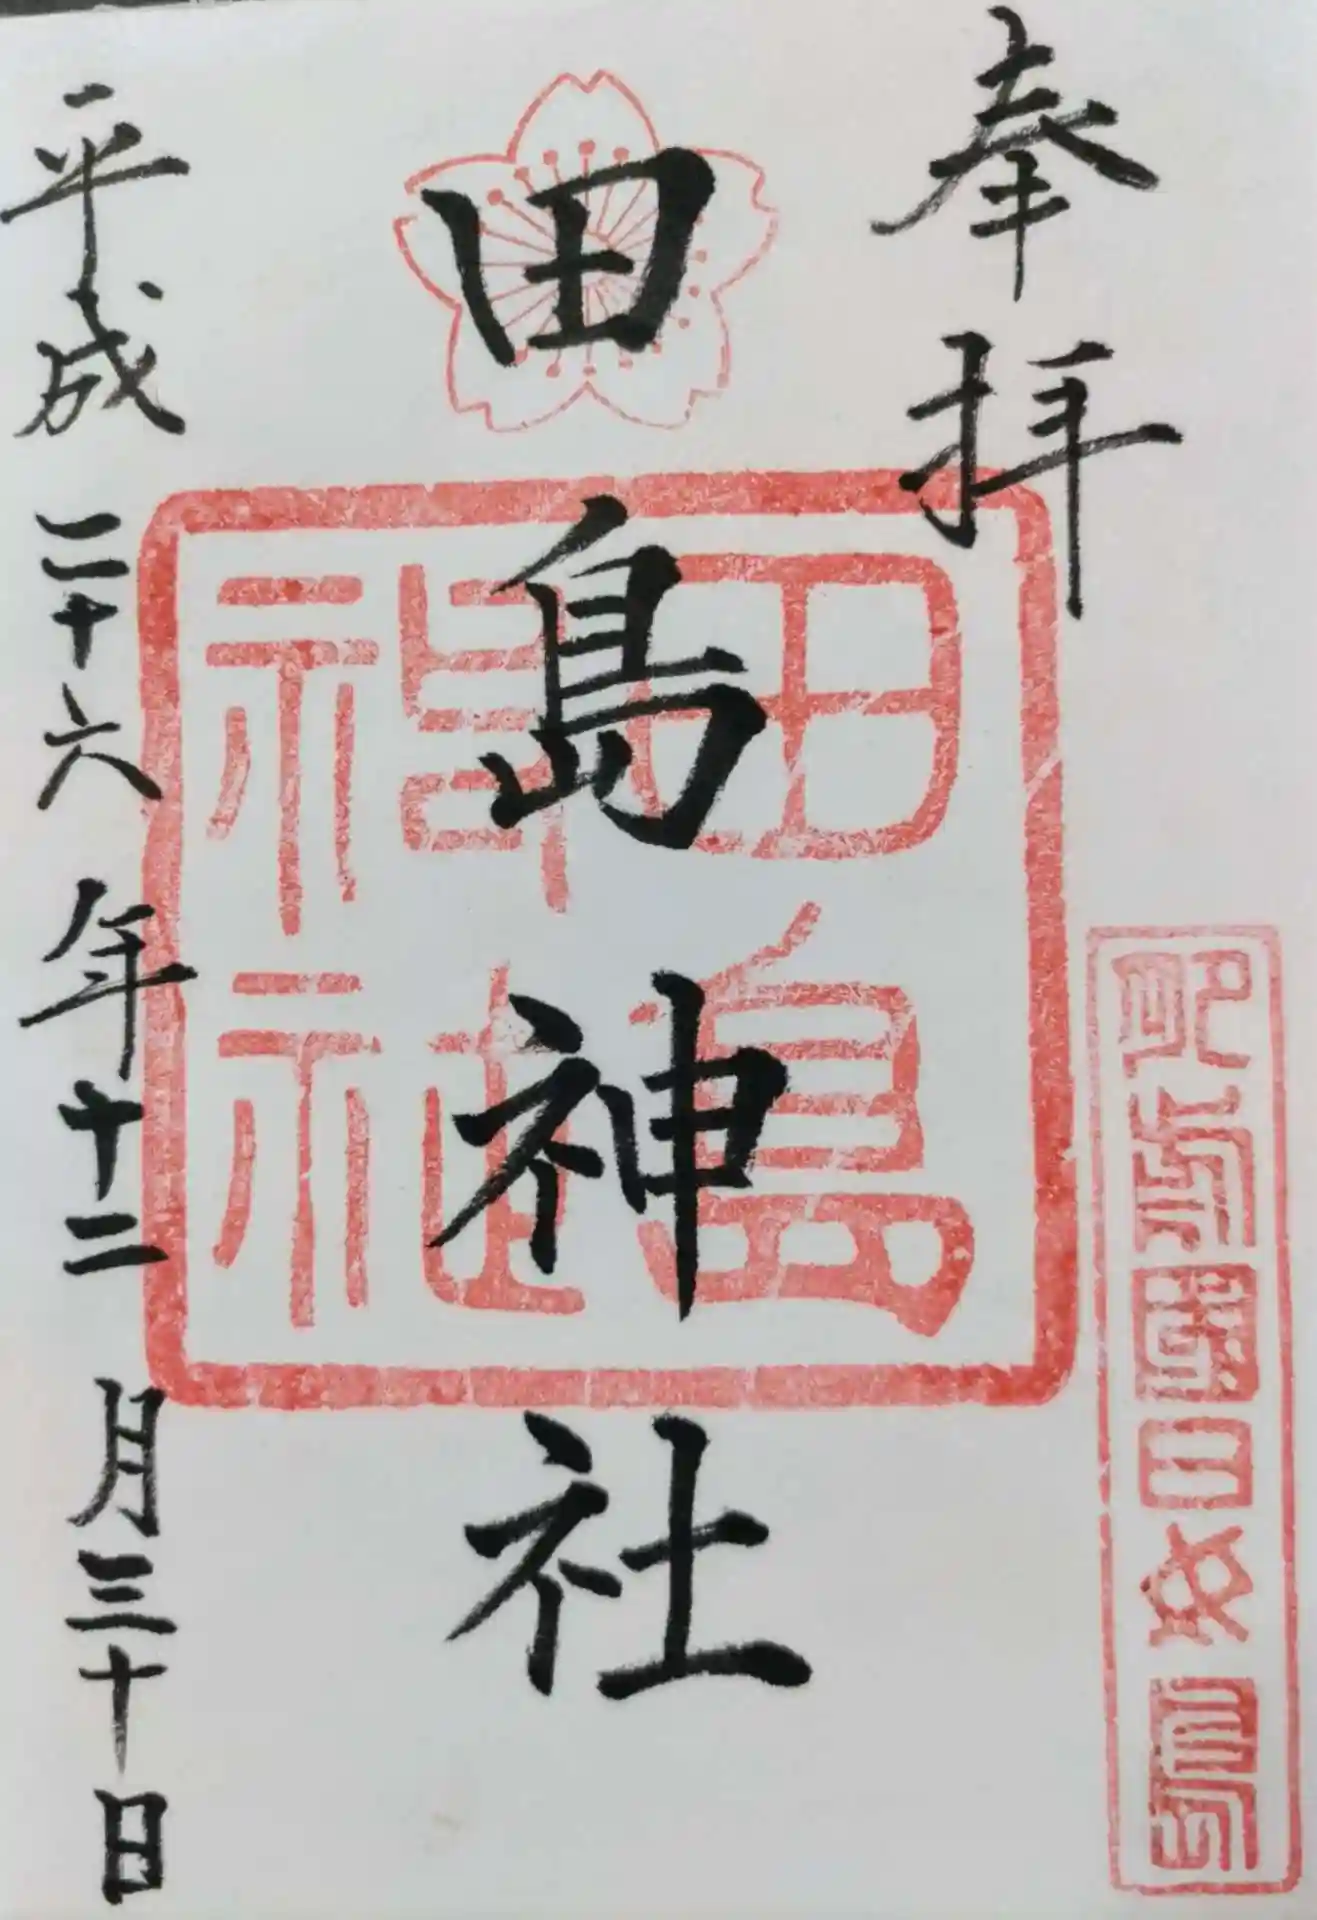 奉拝
肥前國日少宮
田島神社
田島
神社
平成二十六年十二月三十日